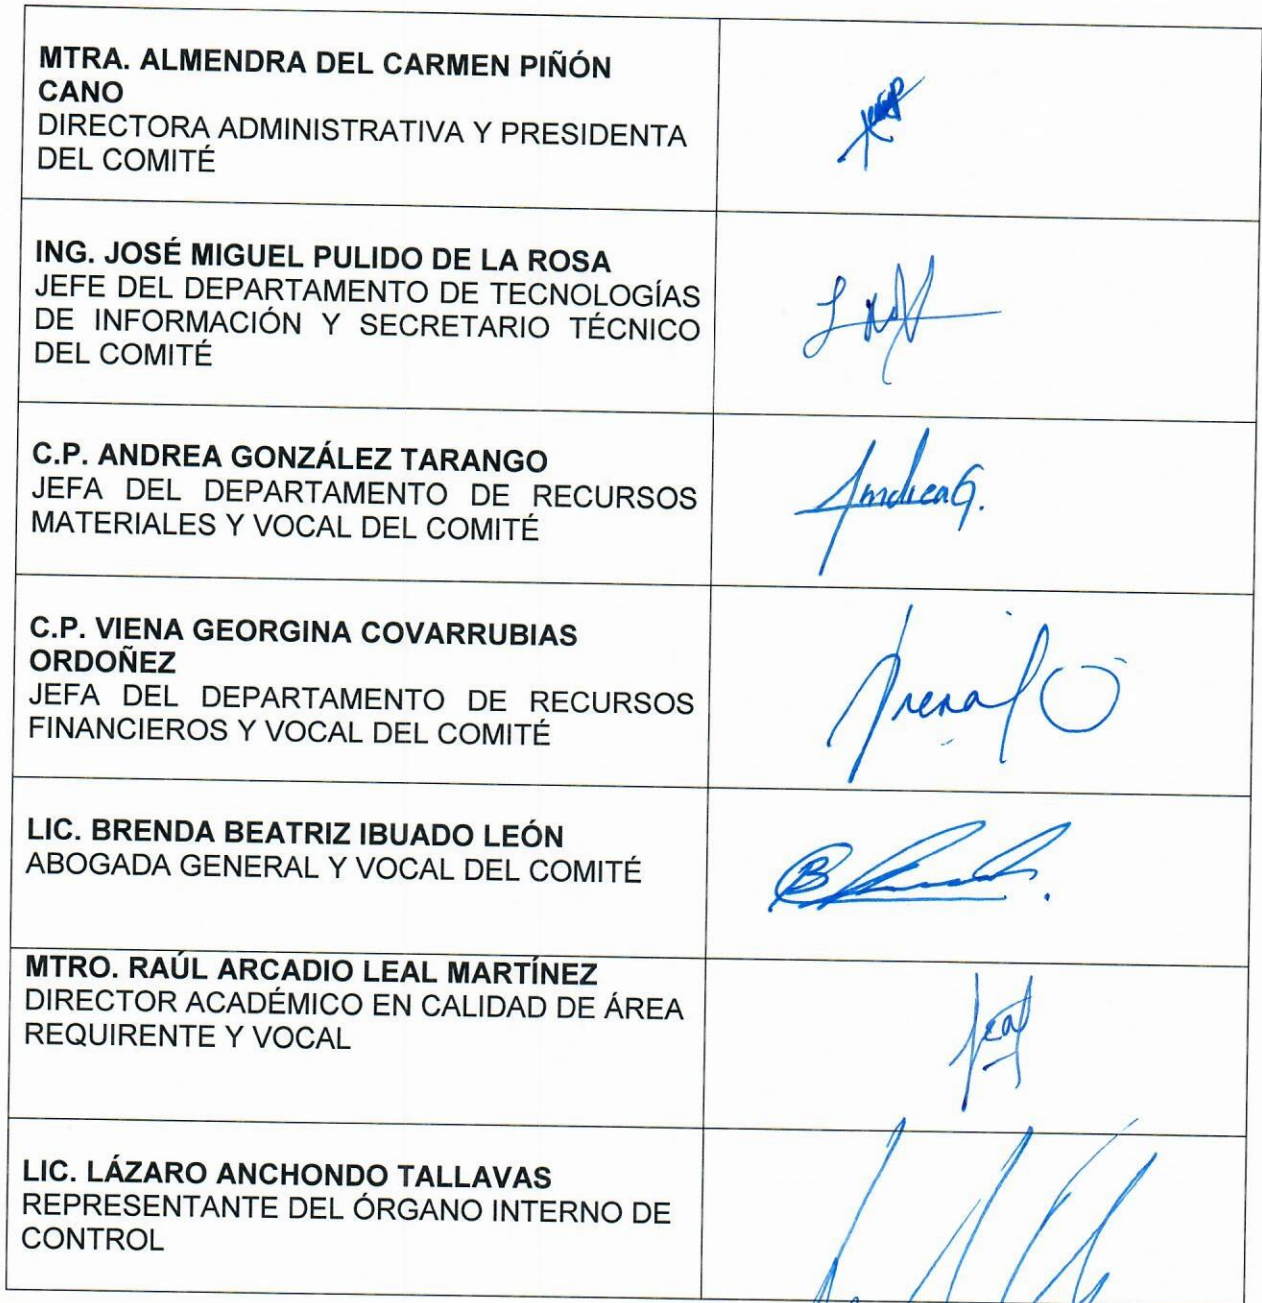 MTRA. ALMENDRA DEL CARMEN PIÑÓN
CANO
DIRECTORA ADMINISTRATIVA Y PRESIDENTA
DEL COMITÉ
ING. JOSÉ MIGUEL PULIDO DE LA ROSA
JEFE DEL DEPARTAMENTO DE TECNOLOGÍAS
DE INFORMACIÓN Y SECRETARIO TÉCNICO
DEL COMITÉ
C.P. ANDREA GONZÁLEZ TARANGO
JEFA DEL DEPARTAMENTO DE RECURSOS
MATERIALES Y VOCAL DEL COMITÉ
AndreaG.
C.P. VIENA GEORGINA COVARRUBIAS
ORDOÑEZ
JEFA DEL DEPARTAMENTO DE RECURSOS
FINANCIEROS Y VOCAL DEL COMITÉ
LIC. BRENDA BEATRIZ IBUADO LEÓN
ABOGADA GENERAL Y VOCAL DEL COMITÉ
MTRO. RAÚL ARCADIO LEAL MARTÍNEZ
DIRECTOR ACADÉMICO EN CALIDAD DE ÁREA
REQUIRENTE Y VOCAL
LIC. LÁZARO ANCHONDO TALLAVAS
REPRESENTANTE DEL ÓRGANO INTERNO DE
CONTROL